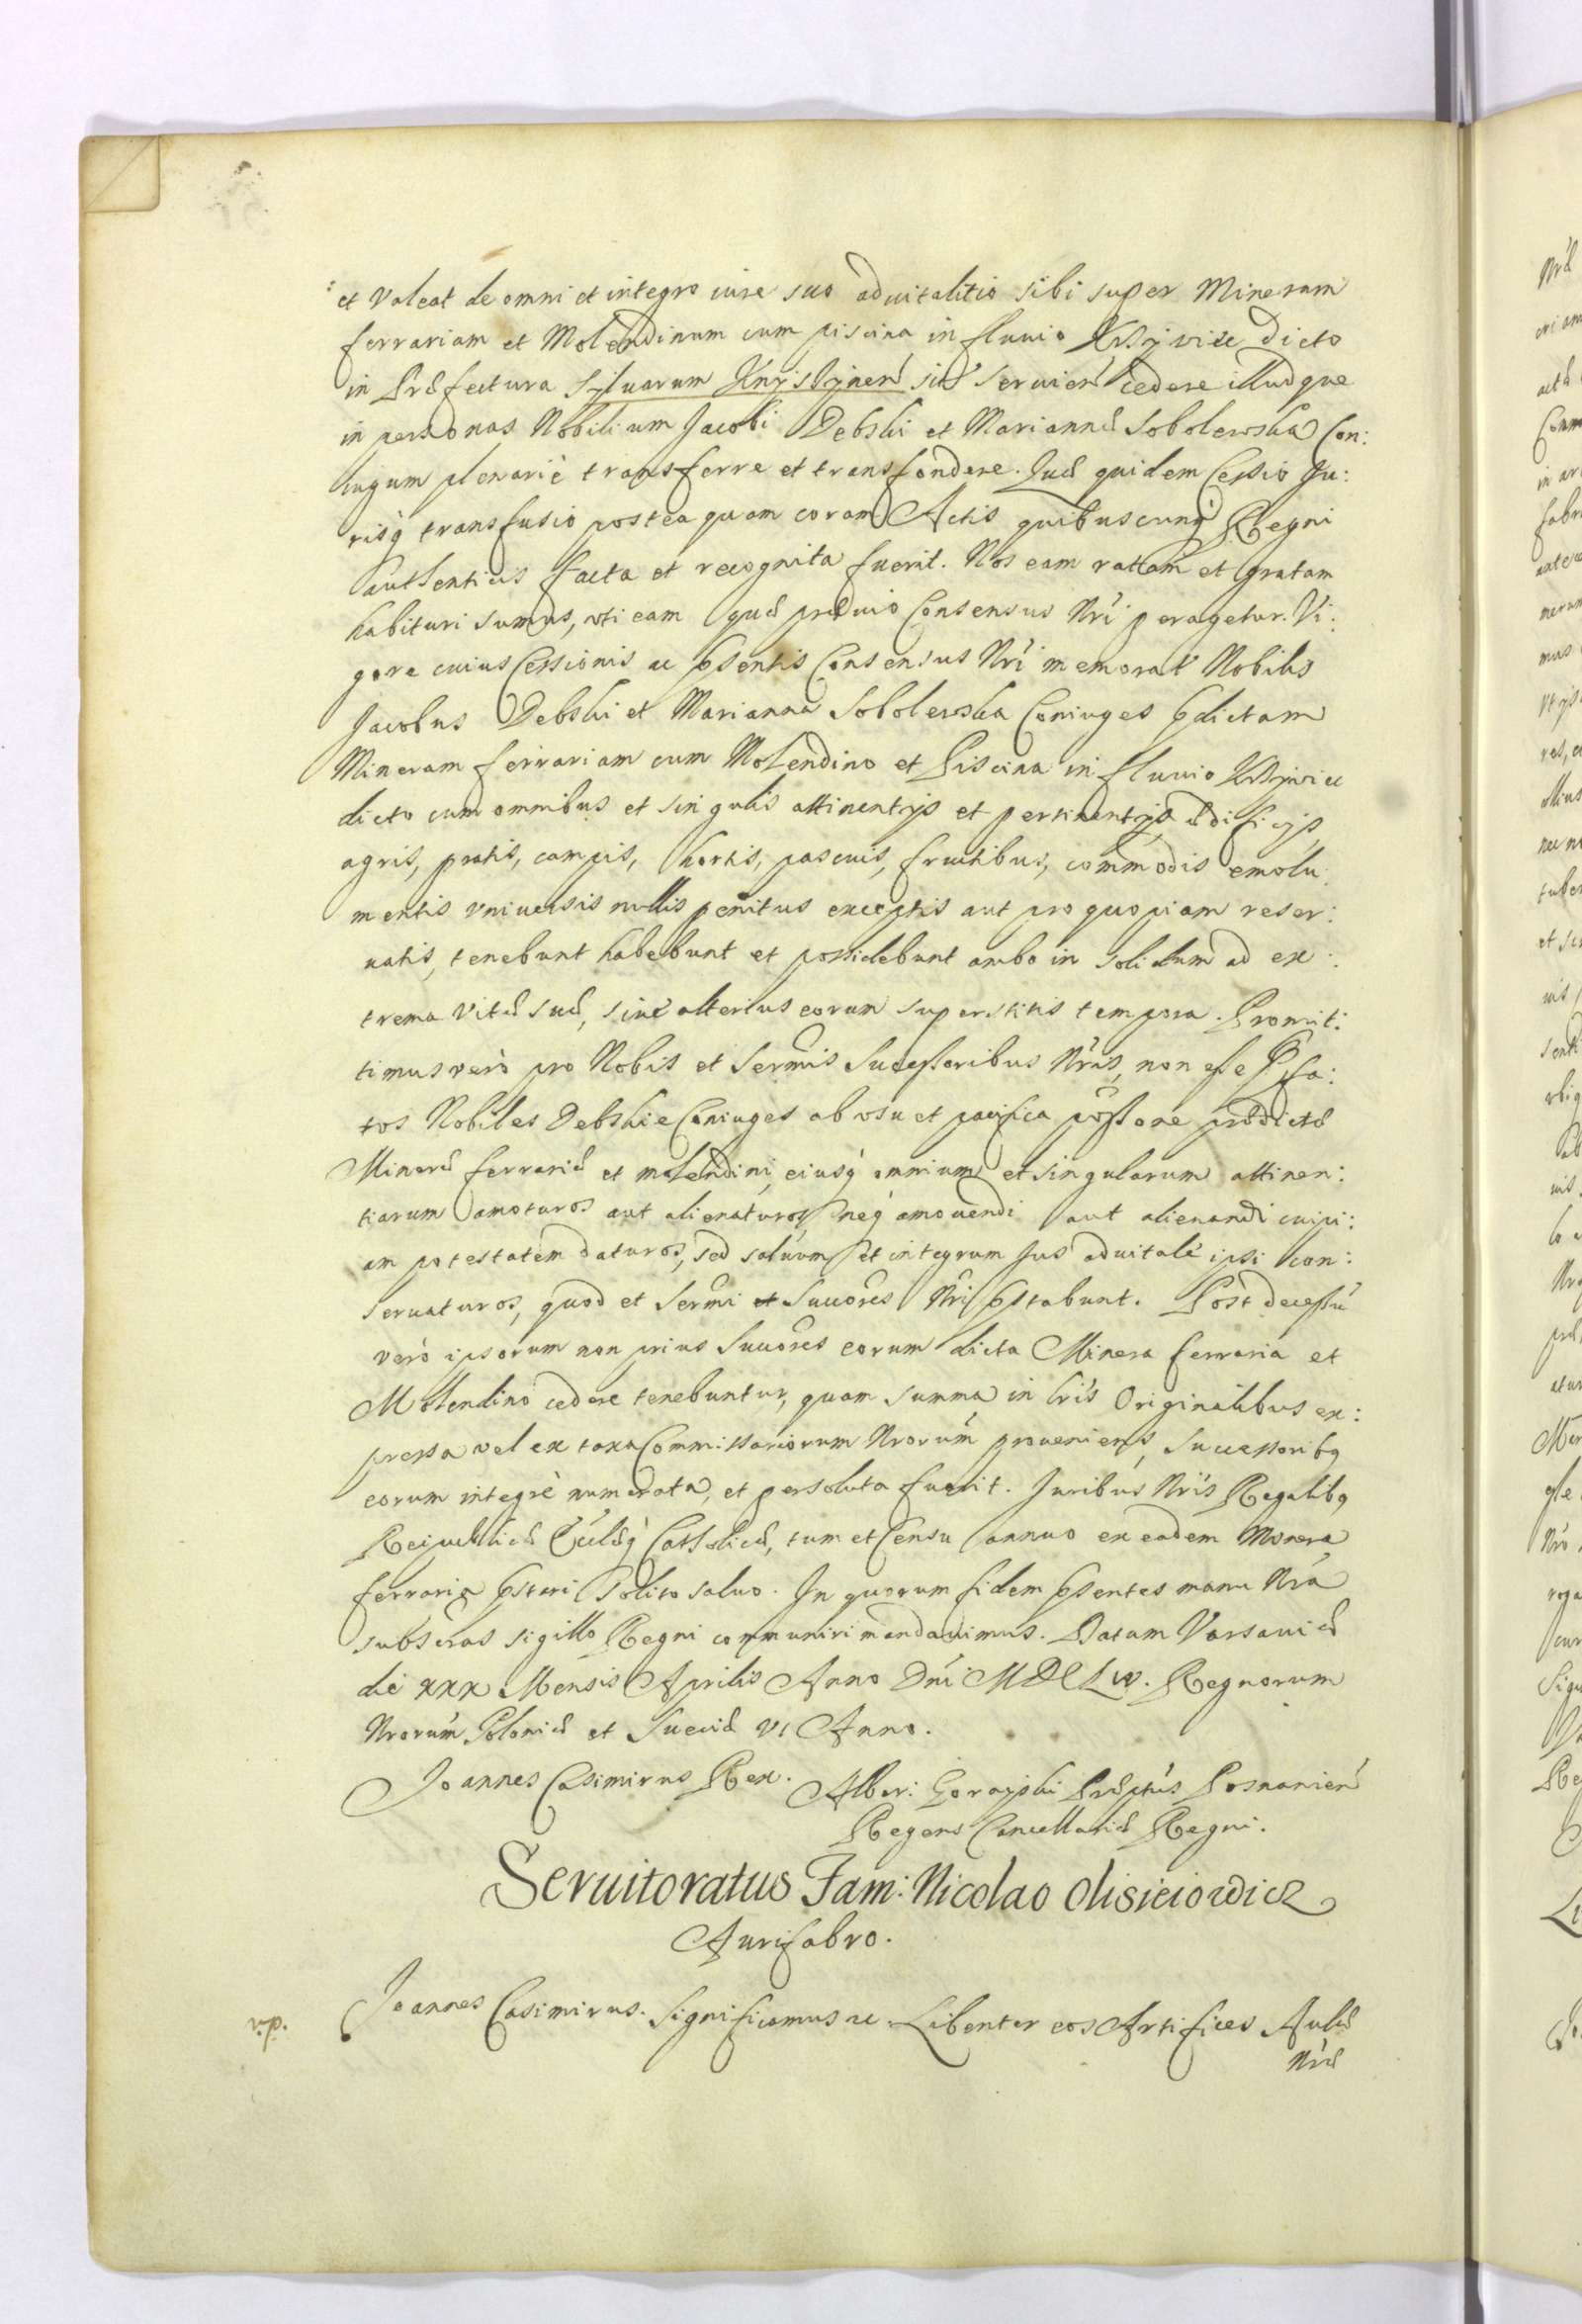 et valeat de omni et integro iure suo aduitalitio sibi super Mineram
ferrariam et Molendinum cum piscina in fluuio Krzÿwice dicto
in Præfectura Sÿluarum Knÿsÿnen sit' seruien' cedere illudque
in personas Nobilium Jacobi Debski et Mariannæ Sobolewska Con:
iugum plenariè transferre et transfundere. Quæ quidem Cessio Ju:
risq́ transfusio postea quam coram Actis quibuscunq́ Regni
authenticis facta et recognita fuerit. Nos eam ratam et gratam
habituri sumus, vti eam quæ præuio Consensus Nr̃i peragetur. Vi:
gore cuius Cessionis ac p̃sentis Consensus Nr̃i memorat' Nobilis
Jacobus Debski et Marianna Sobolewska Coniuges p̃dictam
Mineram ferrariam cum Molendino et Piscina in fluuio Krzÿwice
dicto cum omnibus et singulis attinentÿs et pertinentÿs ædificÿs,
agris, pratis, campis, hortis, pascuis, fructibus, commodis emolu:
mentis vniuersis nullis penitus exceptis aut pro quopiam reser:
uatis, tenebunt habebunt et possidebunt ambo in solidum ad ex:
trema vitæ suæ, siue alterius eorum superstitis tempora. Promit:
timus verò pro Nobis et Serm̃is Successoribus Nr̃is, non esse P̃fa:
tos Nobiles Debskie Coniuges ab vsu et pacifica põssone prædictæ
Mineræ ferrariæ et molendini, eiusq́ omnium et singularum attinen:
tiarum amoturos aut alienaturos, neq́ amouendi aut alienandi cuipi:
am potestatem daturos, sed saluum et integrum Jus aduitale ipsi con:
seruaturos, quod et Serm̃i et Succõres Nr̃i p̃stabunt. Post decessũ
verò ipsorum non prius Succõres eorum dicta Minera ferraria et
Molendino cedere tenebuntur, quam summa in lr̃is Originalibus ex:
pressa vel ex taxa Commissariorum Nr̃orum proueniens, Successoribq
eorum integrè numerata, et persoluta fuerit. Juribus Nr̃is Regalibq
Reipublicæ Ec̃clæq́ Catholicæ, tum et Censu annuo ex eadem Minera
ferraria p̃stari solito saluo. In quorum fidem p̃sentes manu Nr̃a
subscras sigillo Regni communiri mandauimus. Datum Varsauiæ
die xxx Mensis Aprilis Anno Dñi MDCLIV. Regnorum
Nr̃orum Poloniæ et Sueciæ VI Anno.
Joannes Casimirus Rex. Alber: Gorayski Præptus Posnanien'
Regens Cancellariæ Regni.
Seruitoratus Fam: Nicolao Olisiciowicz
Aurifabro.
Joannes Casimirus. Significamus ac Libenter eos Artifices Aulæ
Nr̃æ